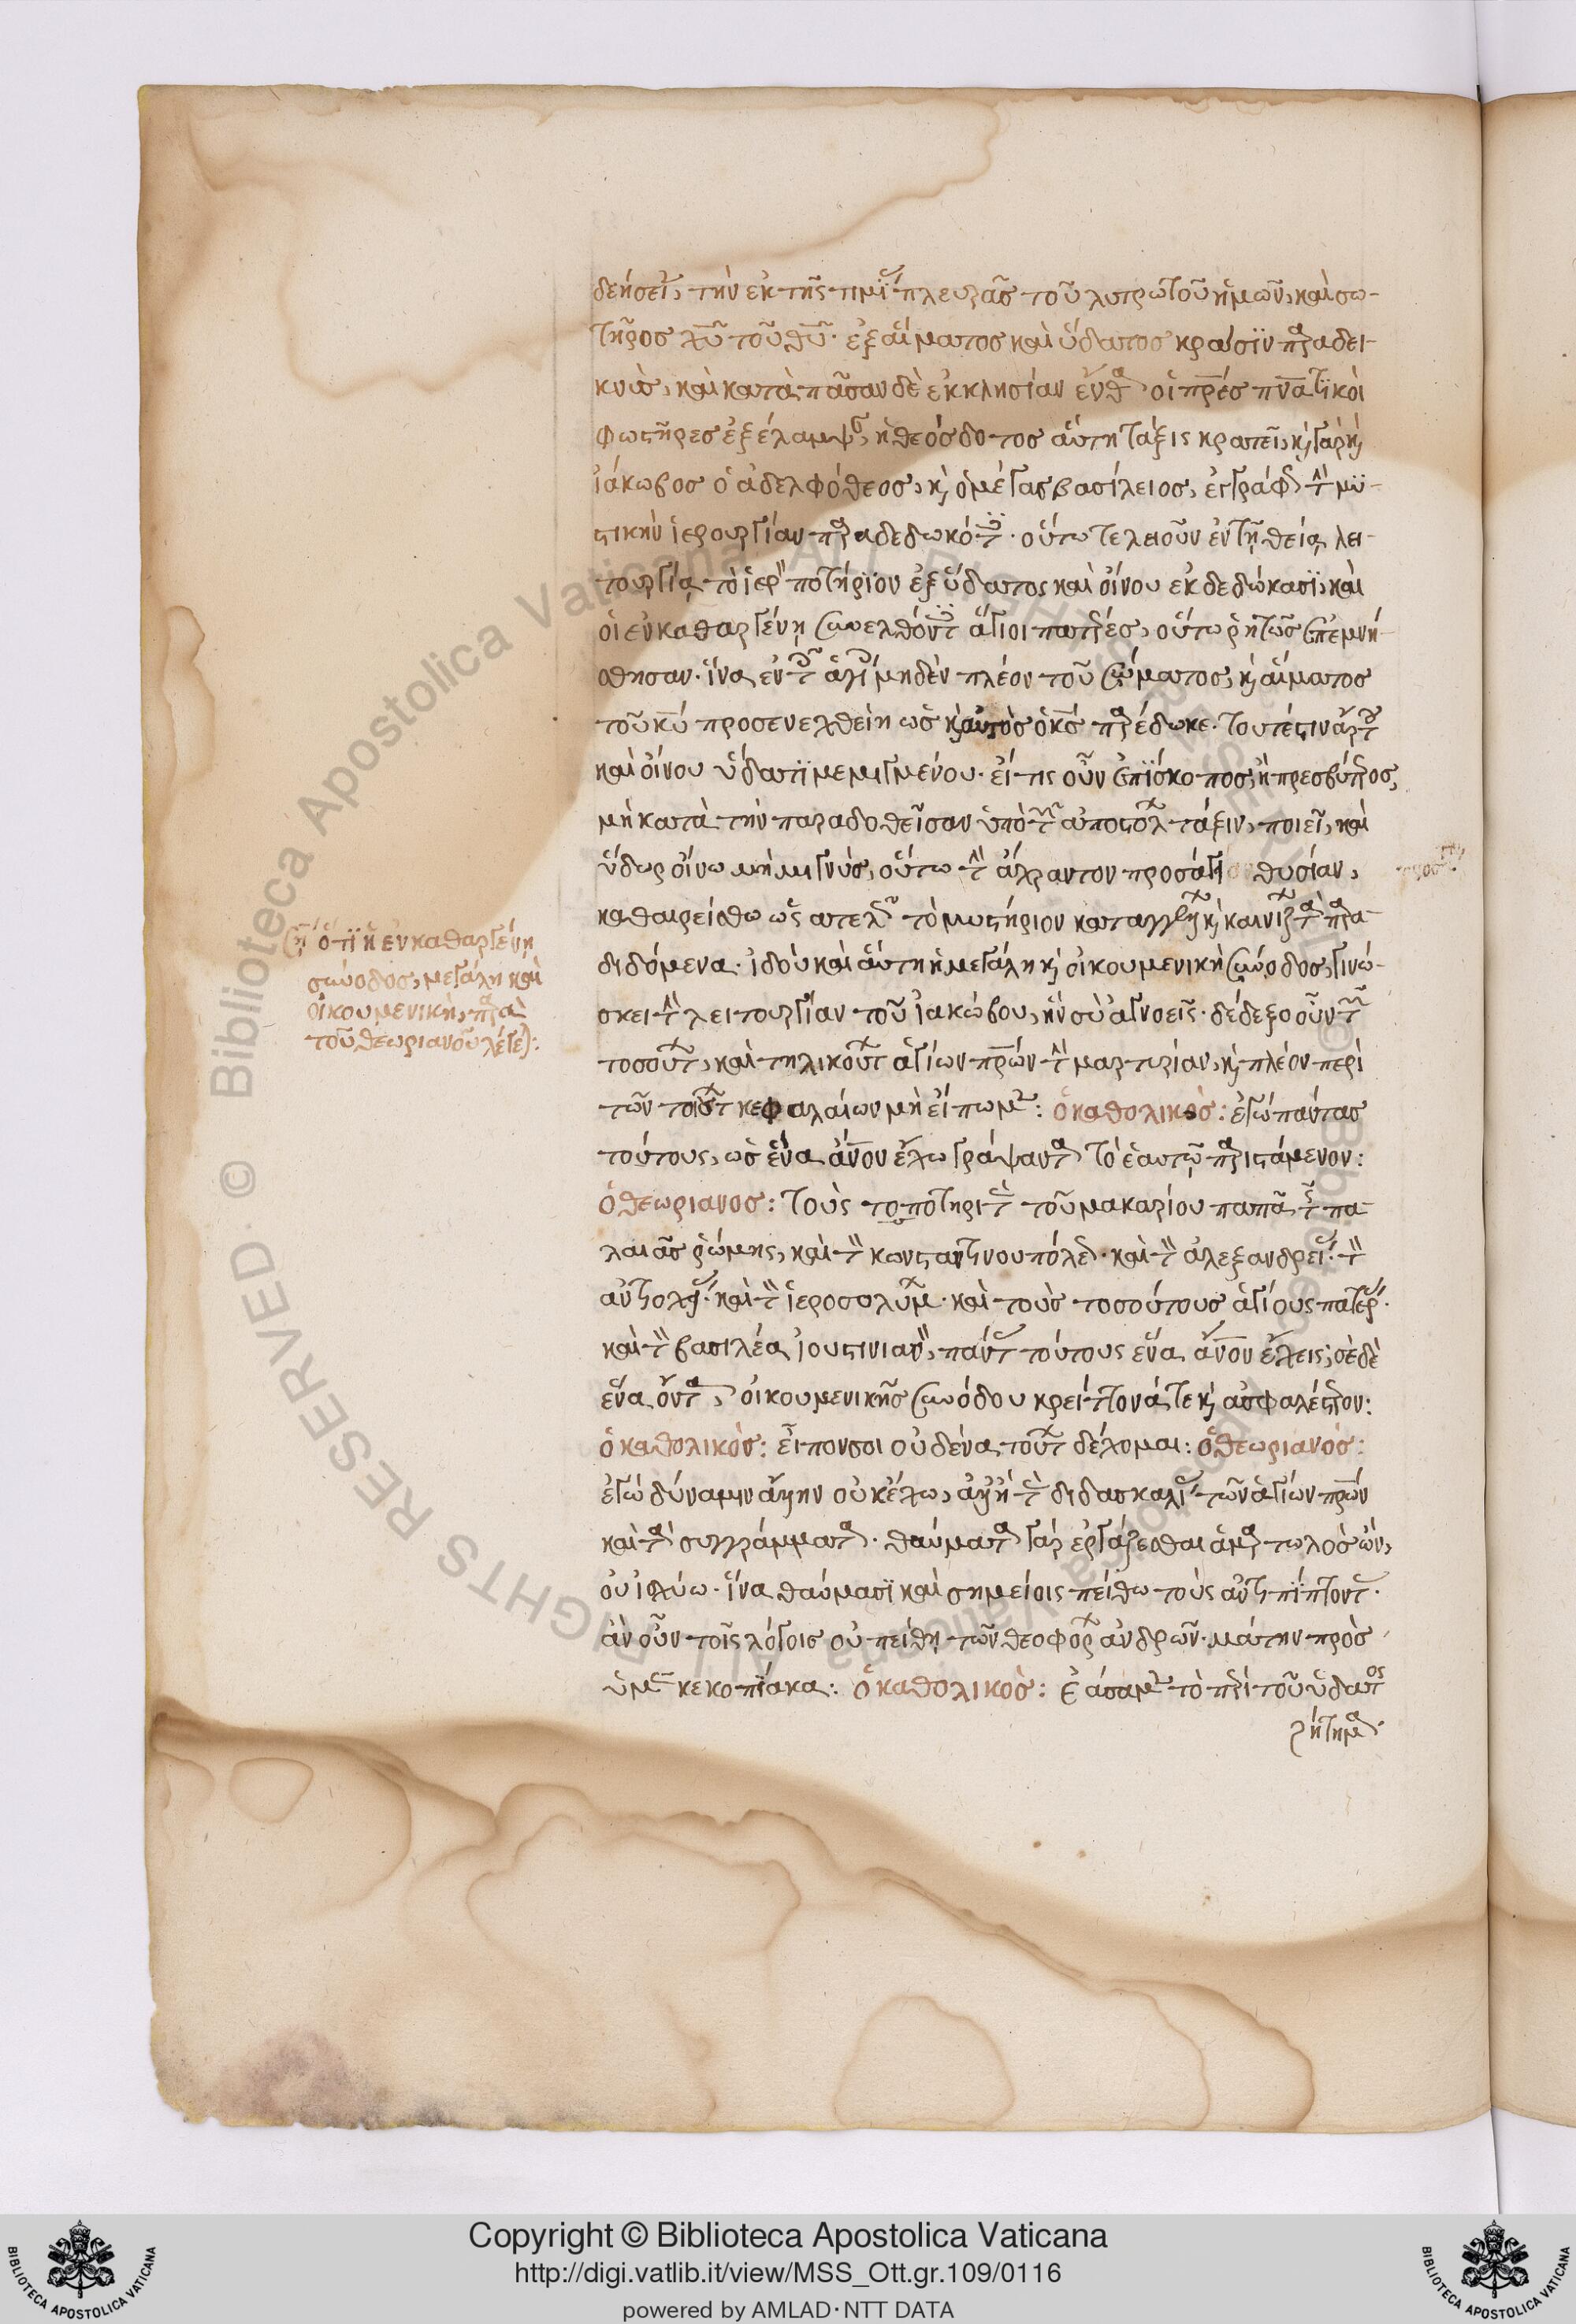 δεήσει, τὴν ἐκ τῆς τιμί πλευρᾶς τοῦ λυτρωτοῦ ἡμῶν, καὶ σω-
τῆρος χυ τοῦ θυ· ἐξ αἵματος καὶ ὕδατος κρᾶσϊν παραδει-
κνὺς, καὶ κατὰ πᾶσαν δὲ ἐκκλησίαν ἔνθα οἱ πρες πνατϊκοὶ
φωστῆρες ἐξέλαμψ, ἡ θεόσδοτος αὕτη τάξις κρατεῖ, κ γὰρ κ
ἰάκωβος ὁ ἀδελφόθεος, κ ὁ μέγας βασίλειος, ἐγγράφ τ μϋ-
στικὴν ἱερουργίαν παραδεδωκότ· οὕτω τελειοῦν ἐν τῇ θείᾳ λει-
τουργίᾳ τὸ ἱερ ποτήρϊον ἐξ ὕδατος καὶ οἴνου ἐκδεδώκασϊ, καὶ
οἱ ἐν καθαργένῃ συνελθόντ ἅγιοι πατέρες, οὕτω ῥητῶς ἐπεμνή-
σθησαν· ἵνα ἐν τ ἁγί μηδὲν πλέον τοῦ σώματος, κ αἵματος
τοῦ κυ προσενεχθείη ὡς κ αὐτὸς ὁ κς παρέδωκε· τουτέστιν ἄρτ
καὶ οἴνου ὕδατϊ μεμιγμένου· εἴ τις οὖν ἐπΐσκοπος, ἢ πρεσβύτερος,
μὴ κατὰ τὴν παραδοθεῖσαν ὑπὸ τ ἀποστόλ τάξιν, ποιεῖ, καὶ
ὕδωρ οἴνω μὴ μιγνὺς, οὕτω τ ἄχραντον προσάγει θυσίαν,
καθαιρείσθω ὡς ἀτελ τὸ μυστήριον καταγγέλλ κ καινίζ τὰ παρα-
διδόμενα· ἰδοὺ καὶ αὕτη ἡ μεγάλη κ οἰκουμενικὴ σύνοδος, γινώ-
σκει τ λειτουργίαν τοῦ ἰακώβου, ἣν σὺ ἀγνοεῖς· δέδεξο οὖν τ
τοσούτ, καὶ τηλικούτ ἁγίων πρων τ μαρτυρίαν, κ πλέον περὶ
τῶν τοιούτ κεφαλαίων μὴ εἴπωμ: ὁ καθολικὸς: ἐγὼ πάντας
τούτους, ὡς ἕνα ανον ἔχω γράψαντα τὸ ἑαυτῷ παριστάμενον:
ὁ θεωριανὸς: τοὺς τοποτηρητ τοῦ μακαρίου παπᾶ τ πα-
λαιᾶς ῥώμης, καὶ τ κωνσταντινουπόλε· καὶ τ ἀλεξανδρεί· τ
ἀντιοχ· καὶ τ ἱεροσολύμ· καὶ τοὺς τοσούτους ἁγίους πατέρ·
καὶ τ βασιλέα ἰουστινιαν, πάντ τούτους ἕνα ανον ἔχεις; σὲ δὲ
ἕνα ὄντα, οἰκουμενικῆς συνόδου κρείττονά τε κ ἀσφαλέστερον:
ὁ καθολικὸς: εἶπον σοι οὐδένα τούτ δέχομαι: ὁ θεωριανός:
ἐγὼ δύναμιν ἄλλην οὐκ ἔχω, ἀλλ ἢ τ διδασκαλί τῶν ἁγίων πρων
καὶ τὰ συγγράμματα· θαύματα γὰρ ἐργάζεσθαι ἁμαρτωλὸς ὢν,
οὐ ἰσχύω· ἵνα θαύμασϊ καὶ σημείοις πείθω τοὺς ἀντιπΐπτοντ·
ἂν οὖν τοῖς λόγοις οὐ πείθῃ τῶν θεοφόρ ἀνδρῶν· μάτην πρὸς
ὑμ κεκοπΐακα: ὁ καθολικὸς: ἐάσωμ τὸ περὶ τοῦ ὕδατος
ζήτημα·
ση ὅτϊ ἡ ἐν καθαργένῃ
σύνοδος, μεγάλη καὶ
οἰκουμενικὴ, παρὰ
τοῦ θεωριανοῦ λέγετ: